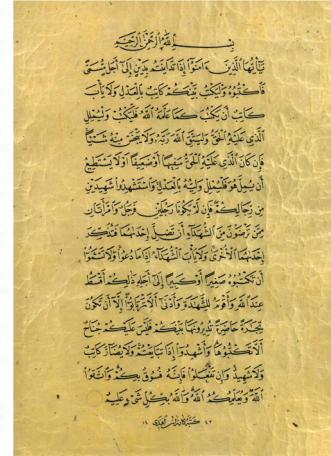 بِسْمِ اللَّهِ الرَّحْمَٰنِ الرَّحِيمِ
يَا أَيُّهَا الَّذِينَ آمَنُوا إِذَا تَدَايَنْتُمْ بِدَيْنٍ إِلَى أَجَلٍ مُسَمًّى
فَاكْتُبُوهُ وَلْيَكْتُبْ بَيْنَكُمْ كَاتِبٌ بِالْعَدْلِ وَلَا يَأْبَ
كَاتِبٌ أَنْ يَكْتُبَ كَمَا عَلَّمَهُ اللَّهُ فَلْيَكْتُبْ وَلْيُمْلِلِ
الَّذِي عَلَيْهِ الْحَقُّ وَلْيَتَّقِ اللَّهَ رَبَّهُ وَلَا يَبْخَسْ مِنْهُ شَيْئًا
فَإِنْ كَانَ الَّذِي عَلَيْهِ الْحَقُّ سَفِيهًا أَوْ ضَعِيفًا أَوْ لَا يَسْتَطِيعُ
أَنْ يُمِلَّ هُوَ فَلْيُمْلِلْ وَلِيُّهُ بِالْعَدْلِ وَاسْتَشْهِدُوا شَهِيدَيْنِ
مِنْ رِجَالِكُمْ فَإِنْ لَمْ يَكُونَا رَجُلَيْنِ فَرَجُلٌ وَامْرَأَتَانِ
مِمَّنْ تَرْضَوْنَ مِنَ الشُّهَدَاءِ أَنْ تَضِلَّ إِحْدَاهُمَا فَتُذَكِّرَ
إِحْدَاهُمَا الْأُخْرَى وَلَا يَأْبَ الشُّهَدَاءُ إِذَا مَا دُعُوا وَلَا تَسْأَمُوا
أَنْ تَكْتُبُوهُ صَغِيرًا أَوْ كَبِيرًا إِلَى أَجَلِهِ ذَٰلِكُمْ أَقْسَطُ
عِنْدَ اللَّهِ وَأَقْوَمُ لِلشَّهَادَةِ وَأَدْنَى أَلَّا تَرْتَابُوا إِلَّا أَنْ تَكُونَ
تِجَارَةً حَاضِرَةً تُدِيرُونَهَا بَيْنَكُمْ فَلَيْسَ عَلَيْكُمْ جُنَاحٌ
أَلَّا تَكْتُبُوهَا وَأَشْهِدُوا إِذَا تَبَايَعْتُمْ وَلَا يُضَارَّ كَاتِبٌ
وَلَا شَهِيدٌ وَإِنْ تَفْعَلُوا فَإِنَّهُ فُسُوقٌ بِكُمْ وَاتَّقُوا
اللَّهَ وَيُعَلِّمُكُمُ اللَّهُ وَاللَّهُ بِكُلِّ شَيْءٍ عَلِيمٌ